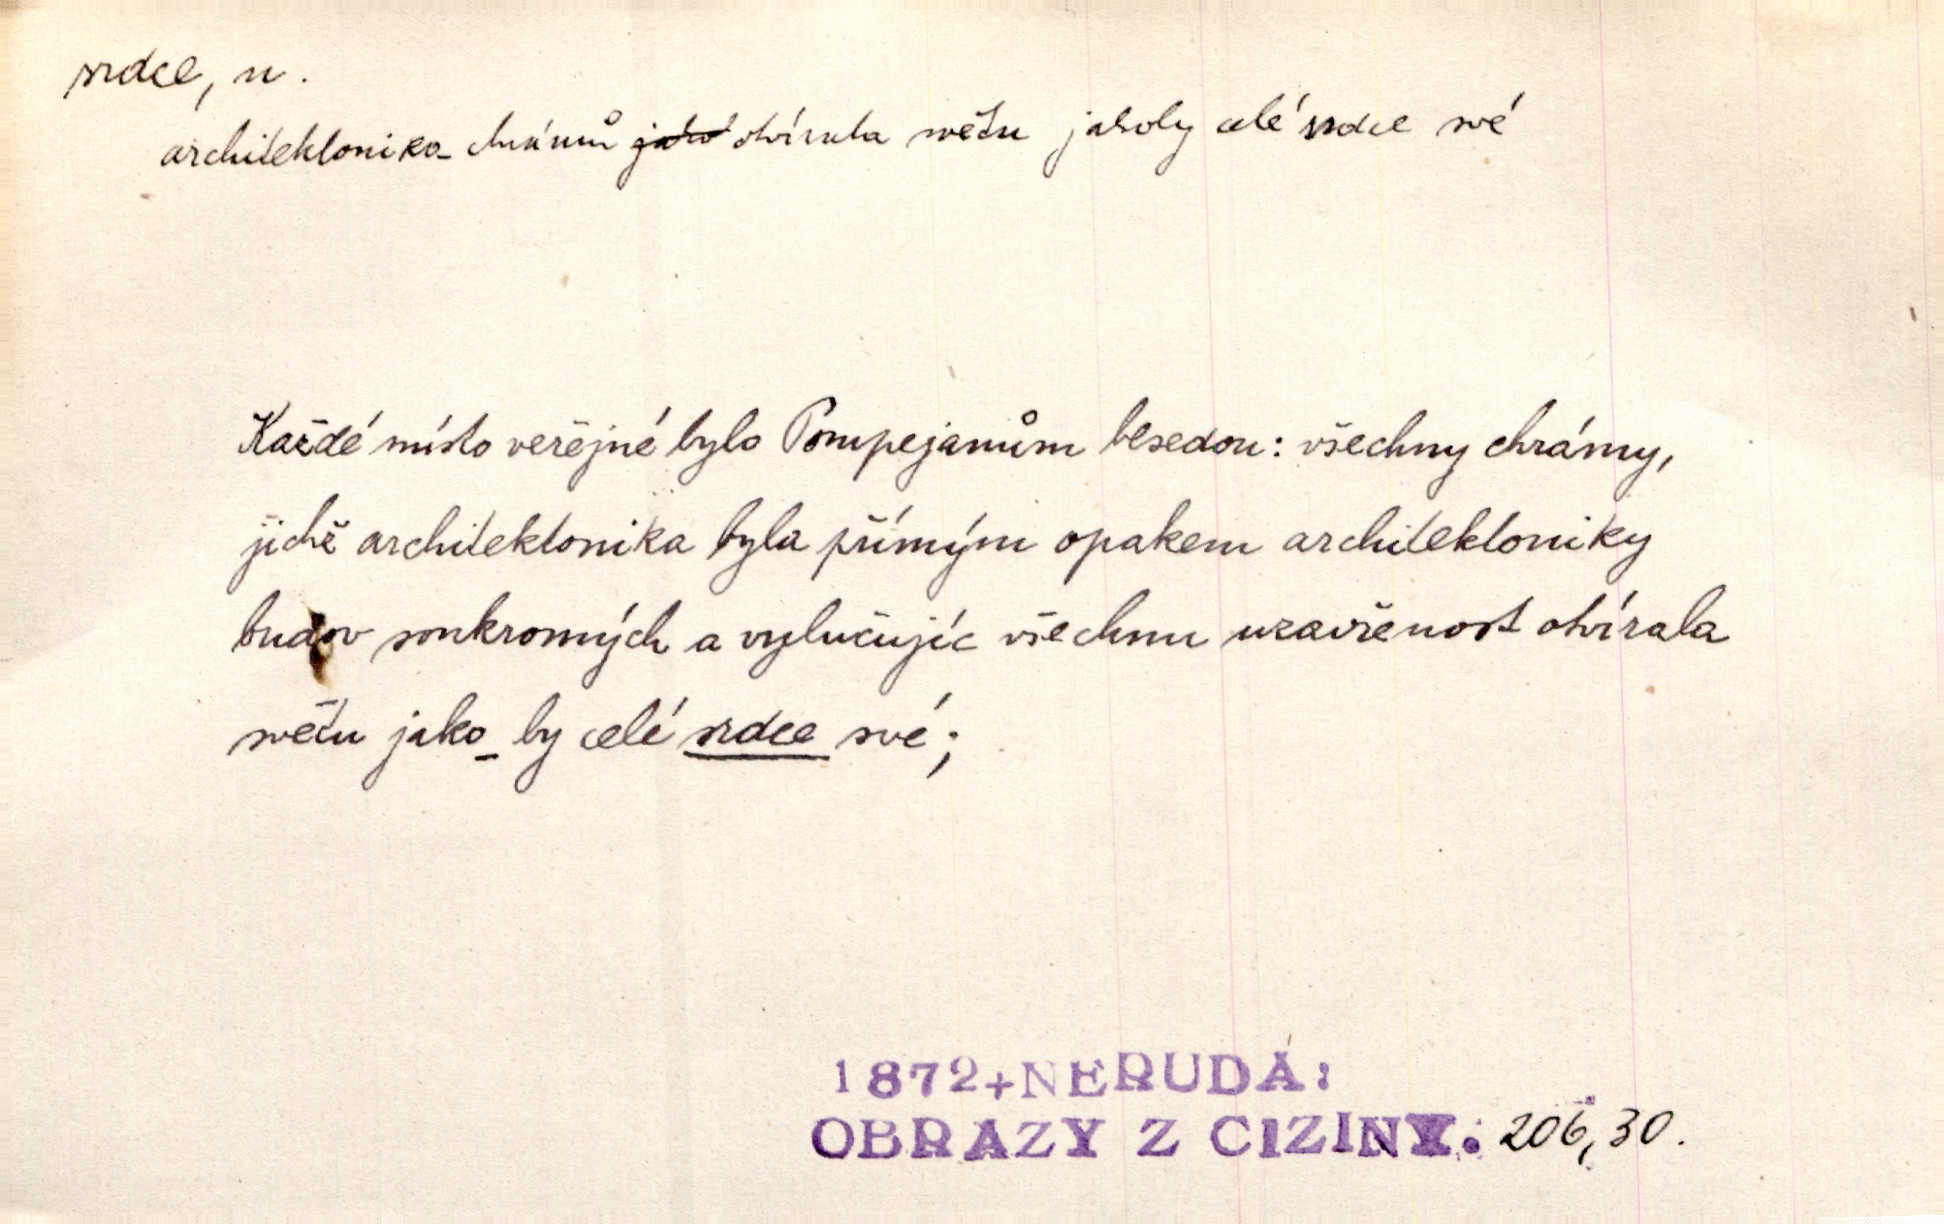 srdce, n.
architektonika chrámů jako otvírala světu jakoby celé srdce své
Každé místo veřejné bylo Pompejanům besedou: všechny chrámy,
jichž architektonika byla přímým opakem architektoniky
budov soukromých a vylučujíc všechnu uzavřenost otvírala
světu jako by celé srdce své;
1872+NERUDA:
OBRAZY Z CIZINY. 206,30.